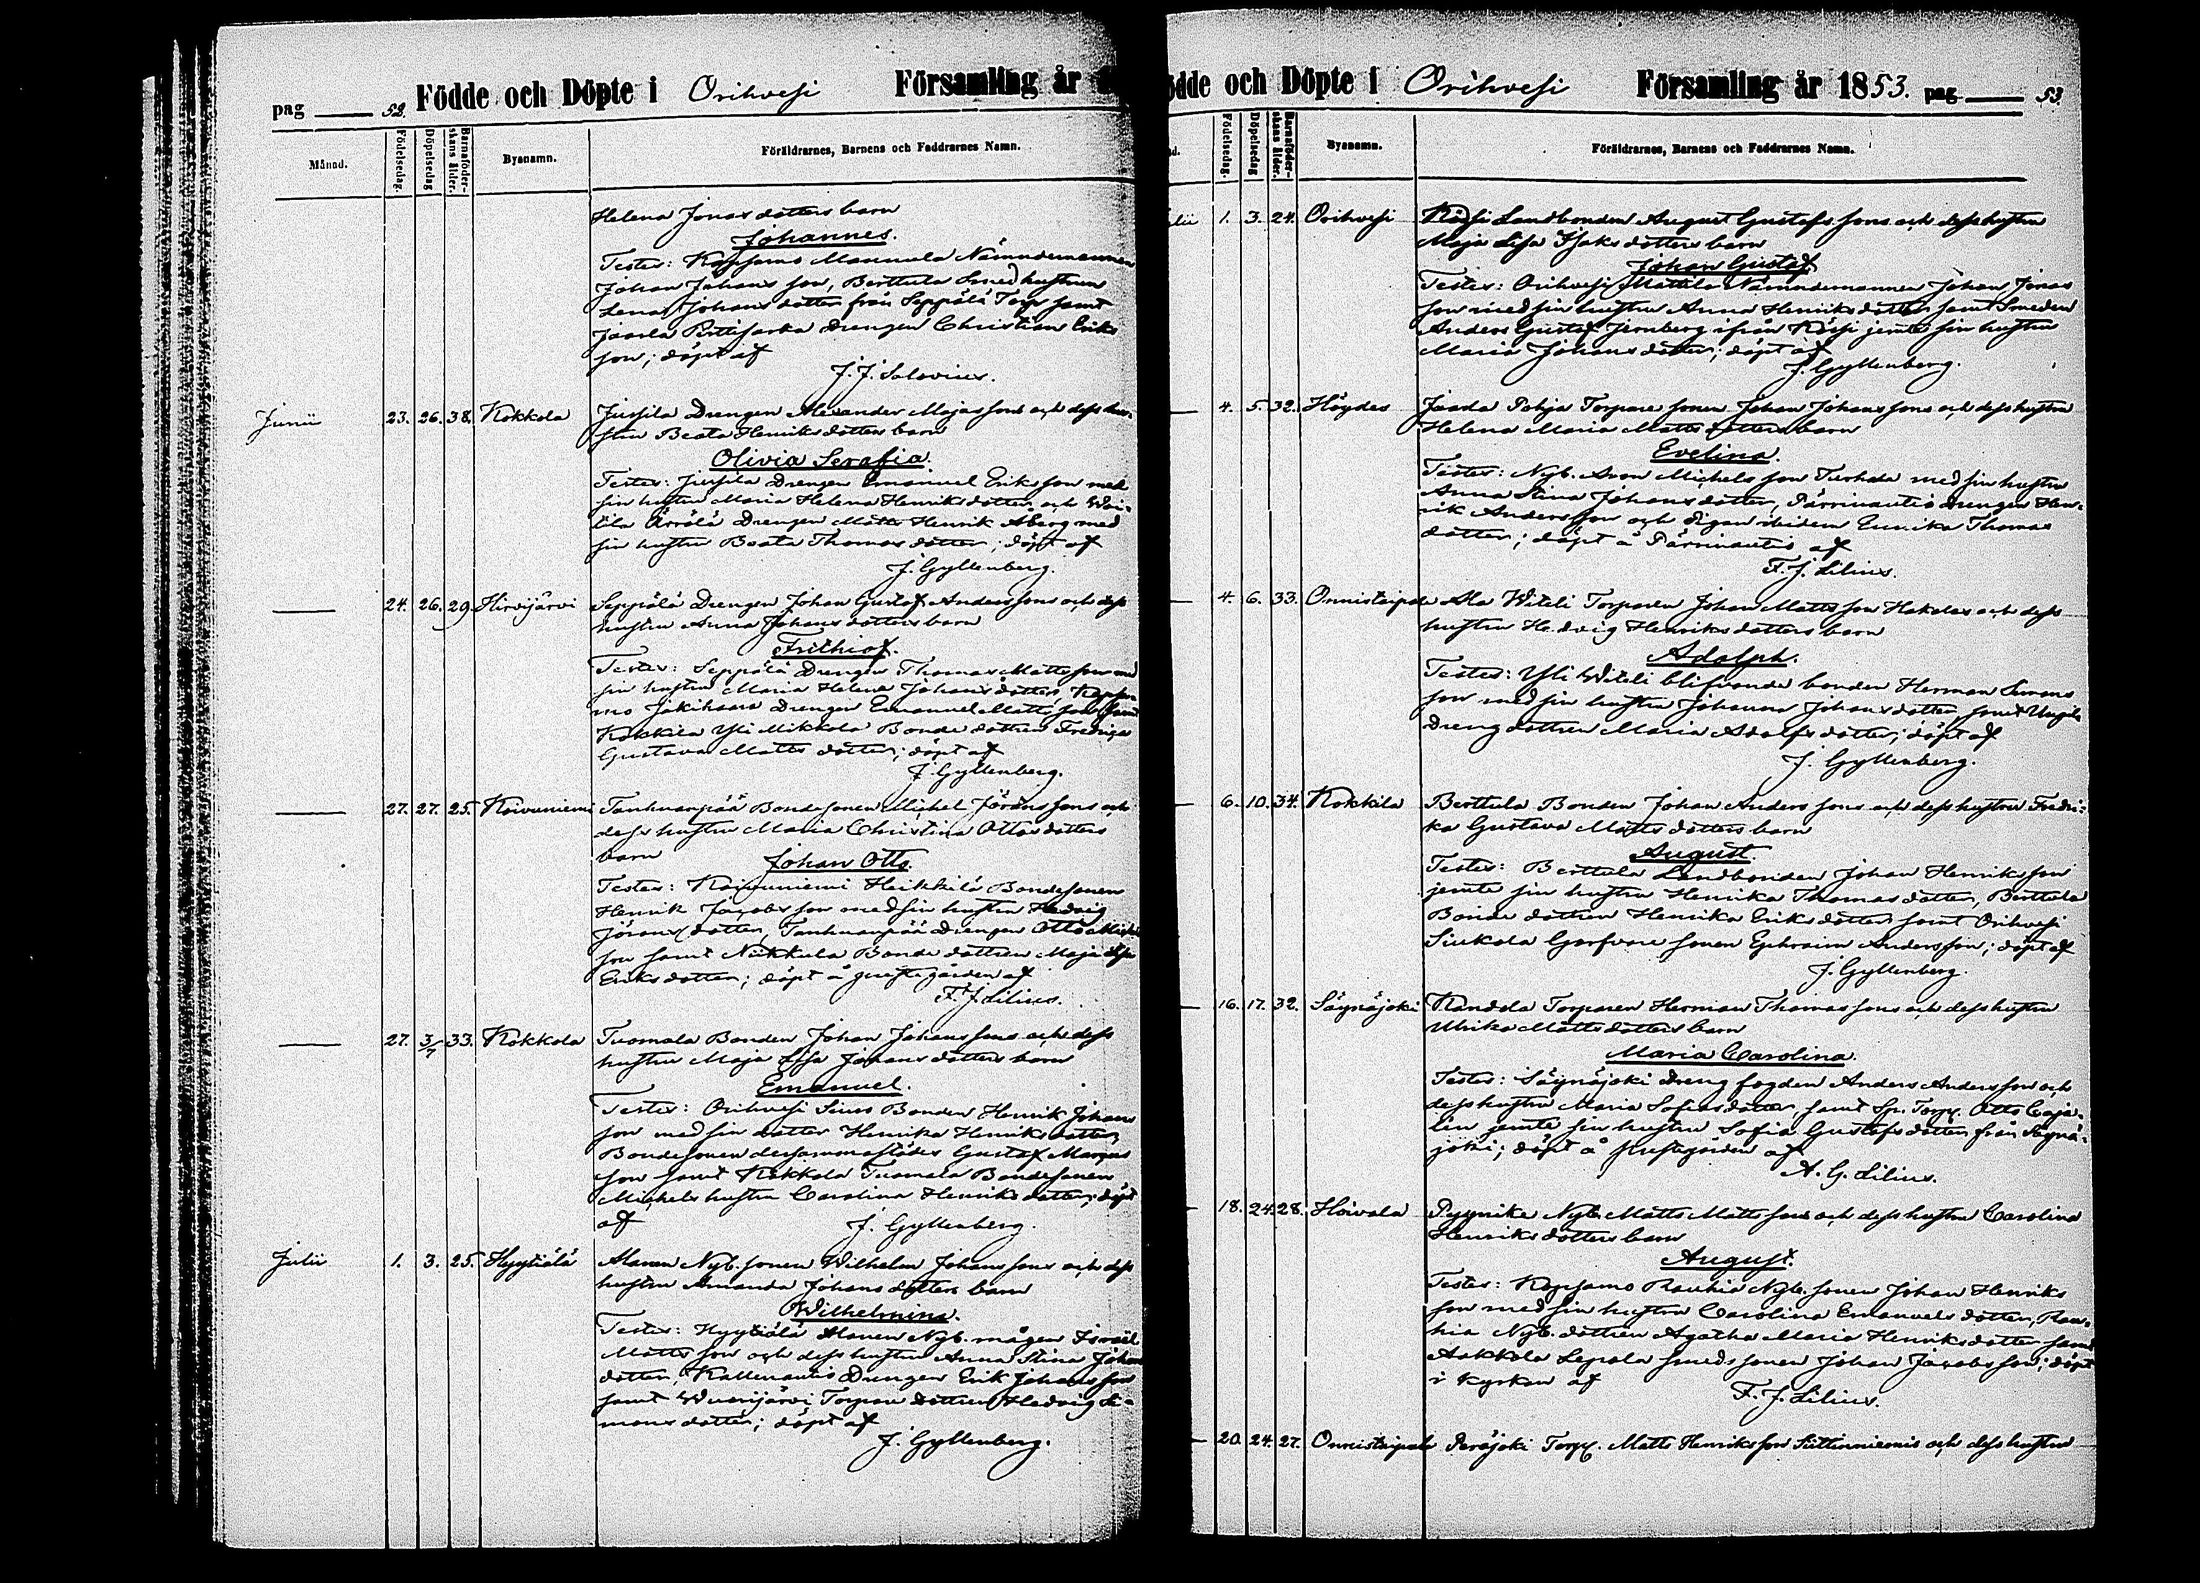 pag 52. Födde och Döpte i Orihvesi Församling år
Månad. Födelsedag. Döpelsedag Barnaföder-skans ålder. Bysnamn. Föräldrarnes, Barnens och Faddrarnes Namn.
Helena Jonas dotters barn
Johannes.
Testes: Kopsamo Mannula Nämndemannen
Johan Johans son, Berttula Smed hustrun
Lena Johans dotter från Seppälä Torp samt
Drengen Christian Eriks
son; döpt af
J. J. Salovius.
Junii 23. 26. 38. Kokkola Jussila Drengen Alexander Majas sons och dess hu-
stru Beata Henriks dotters barn
Olivia Serafia.
Testes: Jussila Drengen Emanuel Eriks son med
sin hustru Maria Helena Henriks dotter och Wei-
tila Ärrölä Drengen Matts Henrik Åberg med
sin hustru Beata Thomas dotter; döpt af
J. Gyllenberg.
24. 26. 29. Hirvijärvi Seppälä Drengen Johan Gustaf Anders sons och dess
hustru Anna Johans dotters barn
Frithiof.
Testes: Seppälä Drengen Thomas Matts son med
sin hustru Maria Helena Johans dotter, Kopsa-
mo Jokihaara Drengen Emanuel Matts son samt
Kokkila Yli Mikkola Bonde dottren Fredrika
Gustava Matts dotter; döpt af
J. Gyllenberg.
27. 27. 25. Koivuniemi Tanhuanpää Bondesonen Michel Jörans sons och
dess hustru Maria Christina Ottos dotters
barn
Johan Otto.
Testes: Koivuniemi Heikkilä Bondesonen
Henrik Jacobs son med sin hustru Hedvig
Jörans dotter, Tanhuanpää Drengen Otto Michels
son samt Nikkula Bonde dottren Maja Lisa
Eriks dotter; döpt å prestegården af
F. J. Lilius.
27. 3/7 33. Kokkola Tuomala Bonden Johan Johans sons och dess
hustru Maja Lisa Johans dotters barn
Emanuel.
Testes: Orihvesi Sinus Bonden Henrik Johans
son med sin dotter Henrika Henriks dotter,
Bondesonen dersammastädes Gustaf Marcus
son samt Kokkola Tuomala Bondesonen
Michels hustru Carolina Henriks dotter; döpt
af
J. Gyllenberg.
Julii 1. 3. 25. Hyytiälä Alanen Nyb. sonen Wilhelm Johans sons och dess
hustru Amanda Johans dotters barn
Wilhelmina.
Testes: Hyytiälä Alanen Nyb. mågen Israël
Matts son och dess hustru Anna Stina Johans
dotter, Kallenautis Drengen Erik Johans son
samt Wuorijärvi Torpare dottren Hedvig Si-
mons dotter; döpt af
J. Gyllenberg.
ödde och Döpte i Orihvesi Församling år 1853. pag 53.
Födelsedag. Döpelsedag Barnaföder-skans ålder. Bysnamn. Föräldrarnes, Barnens och Faddrarnes Namn.
1. 3. 24. Orihvesi Landbonden August Gustafs sons och dess hustru
Maja Lisa Isaks dotters barn
Johan Gustaf.
Testes: Orihvesi Mattila Nämndemannen Johan Jonas
son med sin hustru Anna Henriks dotter samt Smeden
Anders Gustaf Jernberg ifrån jemte sin hustru
Maria Johans dotter; döpt af
J. Gyllenberg.
4. 5. 32. Höydes Pohja Torpare sonen Johan Johans sons och dess hustru
Helena Maria Matts dotters barn
Evelina.
Testes: Nyb. Aron Michels son med sin hustru
Anna Stina Johans dotter, Pärrinautis drengen Hen-
rik Anders son och Pigan ibidem Eunika Thomas
dotter; döpt å Pärrinautis af
F. J. Lilius.
4. 6. 33. Onnistaipale Ala Witeli Torparen Johan Matts son Hakolas och dess
hustru Hedvig Henriks dotters barn
Adolph.
Testes: Yli Witeli blifvande bonden Herman Simons
son med sin hustru Johanna Johans dotter, samt
Dreng dottren Maria Adolfs dotter; döpt af
J. Gyllenberg.
6. 10. 34. Kokkila Berttula Bonden Johan Anders sons och dess hustru Fredri-
ka Gustava Matts dotters barn
August.
Testes: Berttula Landbonden Johan Henriks son
jemte sin hustru Henrika Thomas dotter, Berttula
Bonde dottren Henrika Eriks dotter samt Orihvesi
Siukola Garfvare sonen Ephraim Anders son; döpt af
J. Gyllenberg.
16. 17. 32. Säynäjoki Torparen Herman Thomas sons och dess hustru
Ulrika Matts dotters barn
Maria Carolina.
Testes: Säynäjoki Dreng fogden Anders Anders son och
dess hustru Maria Sofias dotter samt Sp. Torp. Otto Caja-
lin jemte sin hustru Sofia Gustafs dotter från Säynä-
joki; döpt å Prestegården af
A. G. Lilius.
18. 24. 28. Hoivala Pyynike Nyb. Matts Matts sons och dess hustru Carolina
Henriks dotters barn
August.
Testes: Kopsamo Rauhia Nyb. sonen Johan Henriks
son med sin hustru Carolina Emanuels dotter, Rau-
hia Nyb. dottren Agatha Maria Henriks dotter samt
Aakkola Lepola smeds sonen Johan Jacobs son; döpt
i kyrkan af
F. J. Lilius.
20. 24. 27. Onnistaipale Peräjoki Torp. Matts Henriks son och dess hustru